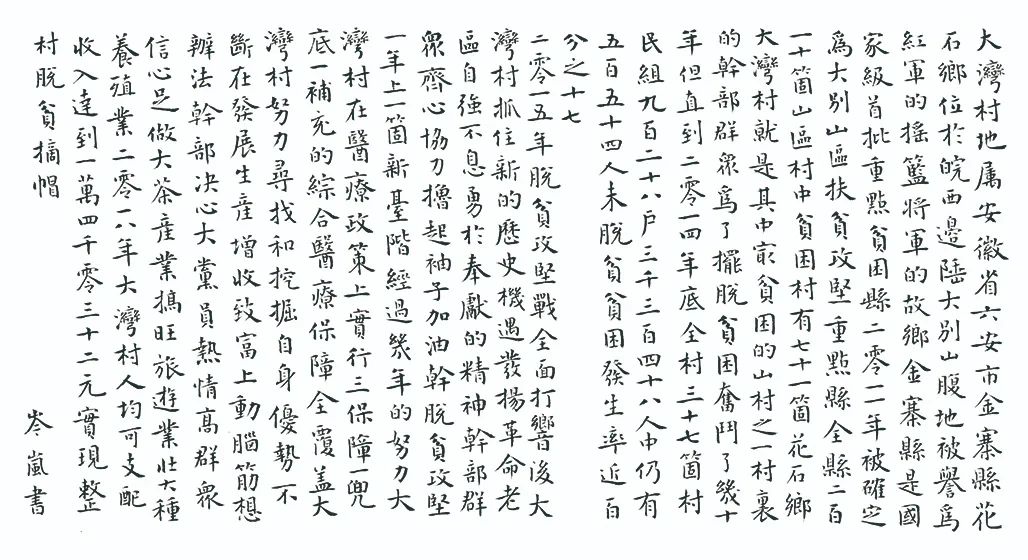 大灣村地属安徽省六安市金寨縣花
石鄉位於皖西邊陲大别山腹地被譽爲
紅軍的摇籃将軍的故鄉金寨縣是國
家級首批重點貧困縣二零一一年被確定
爲大别山區扶貧攻堅重點縣全縣二百
一十箇山區村中貧困村有七十一箇花石鄉
大灣村就是其中㝡貧困的山村之一村裏
的幹部群眾爲了擺脱貧困奮鬥了幾十
年但直到二零一四年底全村三十七箇村
民組九百二十八户三千三百四十八人中仍有
五百五十四人未脱貧貧困發生率近百
分之十七
二零一五年脱貧攻堅戰全面打響後大
灣村抓住新的歷史機遇發揚革命老
區自強不息勇於奉獻的精神幹部群
眾齊心協力擼起袖子加油幹脱貧攻堅
一年上一箇新臺階經過幾年的努力大
灣村在醫療政策上實行三保障一兜
底一補充的綜合醫療保障全覆盖大
灣村努力尋找和挖掘自身優勢不
斷在發展生産增收致富上動腦筋想
辦法幹部决心大黨員熱情高群眾
信心足做大茶産業搗旺旅遊業壮大種
養殖業二零一八年大灣村人均可支配
收入達到一萬四千零三十二元實現整
村脱貧摘帽
岑嵐書